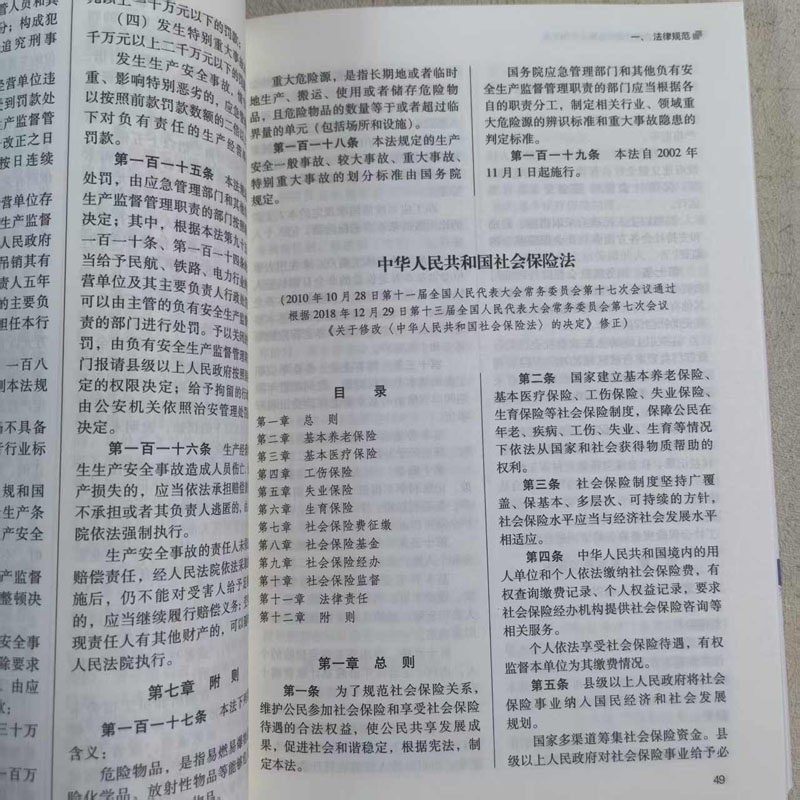 元以上一千万元以下的罚款；
（四）发生特别重大事
千万元以上二千万元以下的罚
发生生产安全事故，情
重、影响特别恶劣的，应急管
以按照前款罚款数额的二倍以
下对负有责任的生产经营
罚款。
第一百一十五条　本法
处罚，由应急管理部门和其他
生产监督管理职责的部门按照
决定；其中，根据本法第九十
一百一十条、第一百一十四条
当给予民航、铁路、电力行业
营单位及其主要负责人行政处
可以由主管的负有安全生产监
责的部门进行处罚。予以关闭
由负有安全生产监督管理
门报请县级以上人民政府按照
定的权限决定；给予拘留的行
由公安机关依照治安管理处
决定。
第一百一十六条　生产经
生生产安全事故造成人员伤亡
产损失的，应当依法承担赔偿
不承担或者其负责人逃匿的，由
院依法强制执行。
生产安全事故的责任人未
赔偿责任，经人民法院依法采
施后，仍不能对受害人给予
的，应当继续履行赔偿义务；受
现责任人有其他财产的，可以
人民法院执行。
第七章　附　则
第一百一十七条　本法下
含义：
危险物品，是指易燃易爆
险化学品、放射性物品等能够
一、法律规范
重大危险源，是指长期地或者临时
地生产、搬运、使用或者储存危险物
品，且危险物品的数量等于或者超过临
界量的单元（包括场所和设施）。
第一百一十八条　本法规定的生产
安全一般事故、较大事故、重大事故、
特别重大事故的划分标准由国务院
规定。
国务院应急管理部门和其他负有安
全生产监督管理职责的部门应当根据各
自的职责分工，制定相关行业、领域重
大危险源的辨识标准和重大事故隐患的
判定标准。
第一百一十九条　本法自 2002 年
11 月 1 日起施行。
中华人民共和国社会保险法
（2010 年 10 月 28 日第十一届全国人民代表大会常务委员会第十七次会议通过
根据 2018 年 12 月 29 日第十三届全国人民代表大会常务委员会第七次会议
《关于修改〈中华人民共和国社会保险法〉的决定》修正）
目　录
第一章　总　则
第二章　基本养老保险
第三章　基本医疗保险
第四章　工伤保险
第五章　失业保险
第六章　生育保险
第七章　社会保险费征缴
第八章　社会保险基金
第九章　社会保险经办
第十章　社会保险监督
第十一章　法律责任
第十二章　附　则
第一章　总　则
第一条　为了规范社会保险关系，
维护公民参加社会保险和享受社会保险
待遇的合法权益，使公民共享发展成
果，促进社会和谐稳定，根据宪法，制
定本法。
第二条　国家建立基本养老保险、
基本医疗保险、工伤保险、失业保险、
生育保险等社会保险制度，保障公民在
年老、疾病、工伤、失业、生育等情况
下依法从国家和社会获得物质帮助的
权利。
第三条　社会保险制度坚持广覆
盖、保基本、多层次、可持续的方针，
社会保险水平应当与经济社会发展水平
相适应。
第四条　中华人民共和国境内的用
人单位和个人依法缴纳社会保险费，有
权查询缴费记录、个人权益记录，要求
社会保险经办机构提供社会保险咨询等
相关服务。
个人依法享受社会保险待遇，有权
监督本单位为其缴费情况。
第五条　县级以上人民政府将社会
保险事业纳入国民经济和社会发展
规划。
国家多渠道筹集社会保险资金。县
级以上人民政府对社会保险事业给予必
49